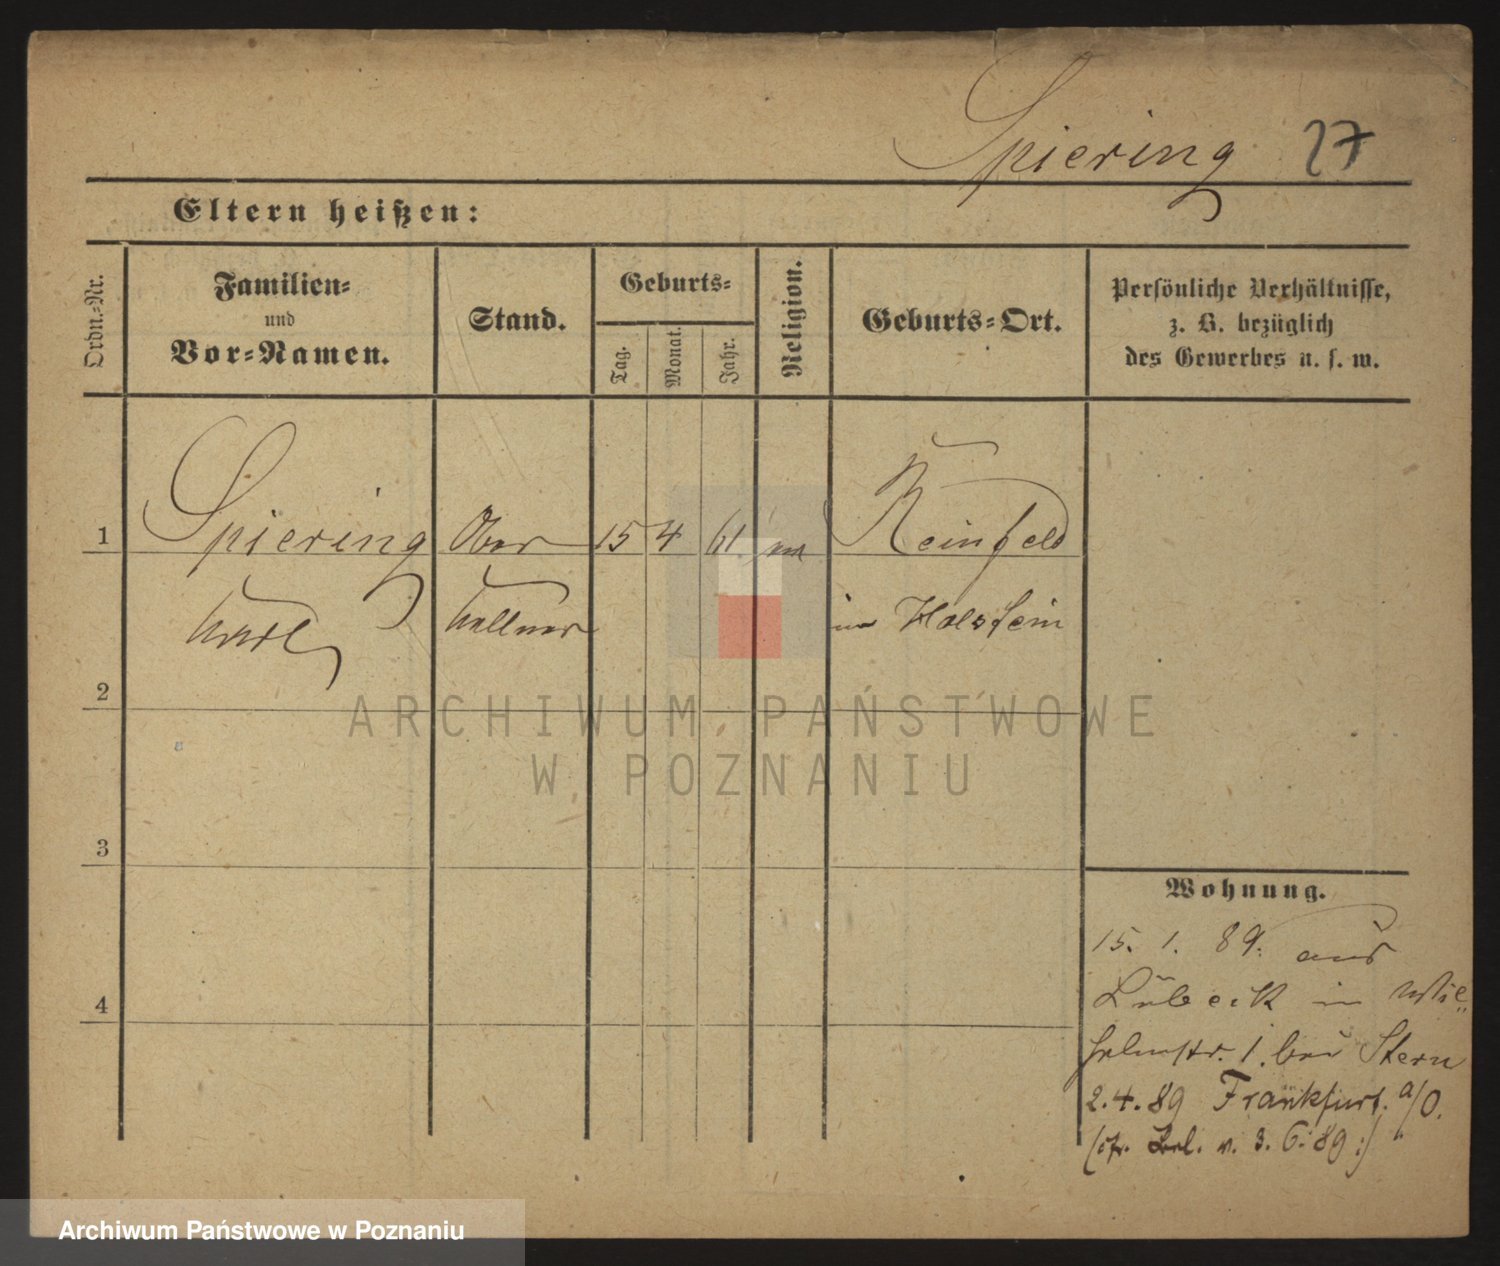 Spiering 27
Eltern heißen:
Ordn.-Nr.
Familien-
und
Vor-Namen.
Stand.
Geburts-
Tag.
Monat.
Jahr.
Religion.
Geburts-Ort.
Persönliche Verhältnisse,
z. B. bezüglich
des Gewerbes u. s. w.
1
Spiering Ober 15 4 61 Reinfeld
Karl Kellner in Holstein
2
ARCHIWUM PAŃSTWOWE
W POZNANIU
3
Wohnung.
15. 1. 89. aus
Lübeck in Wil
helmstr. 1. bei Stern
4
2.4.89 Frankfurt. a/O.
v. 3.6.89:)
Archiwum Państwowe w Poznaniu